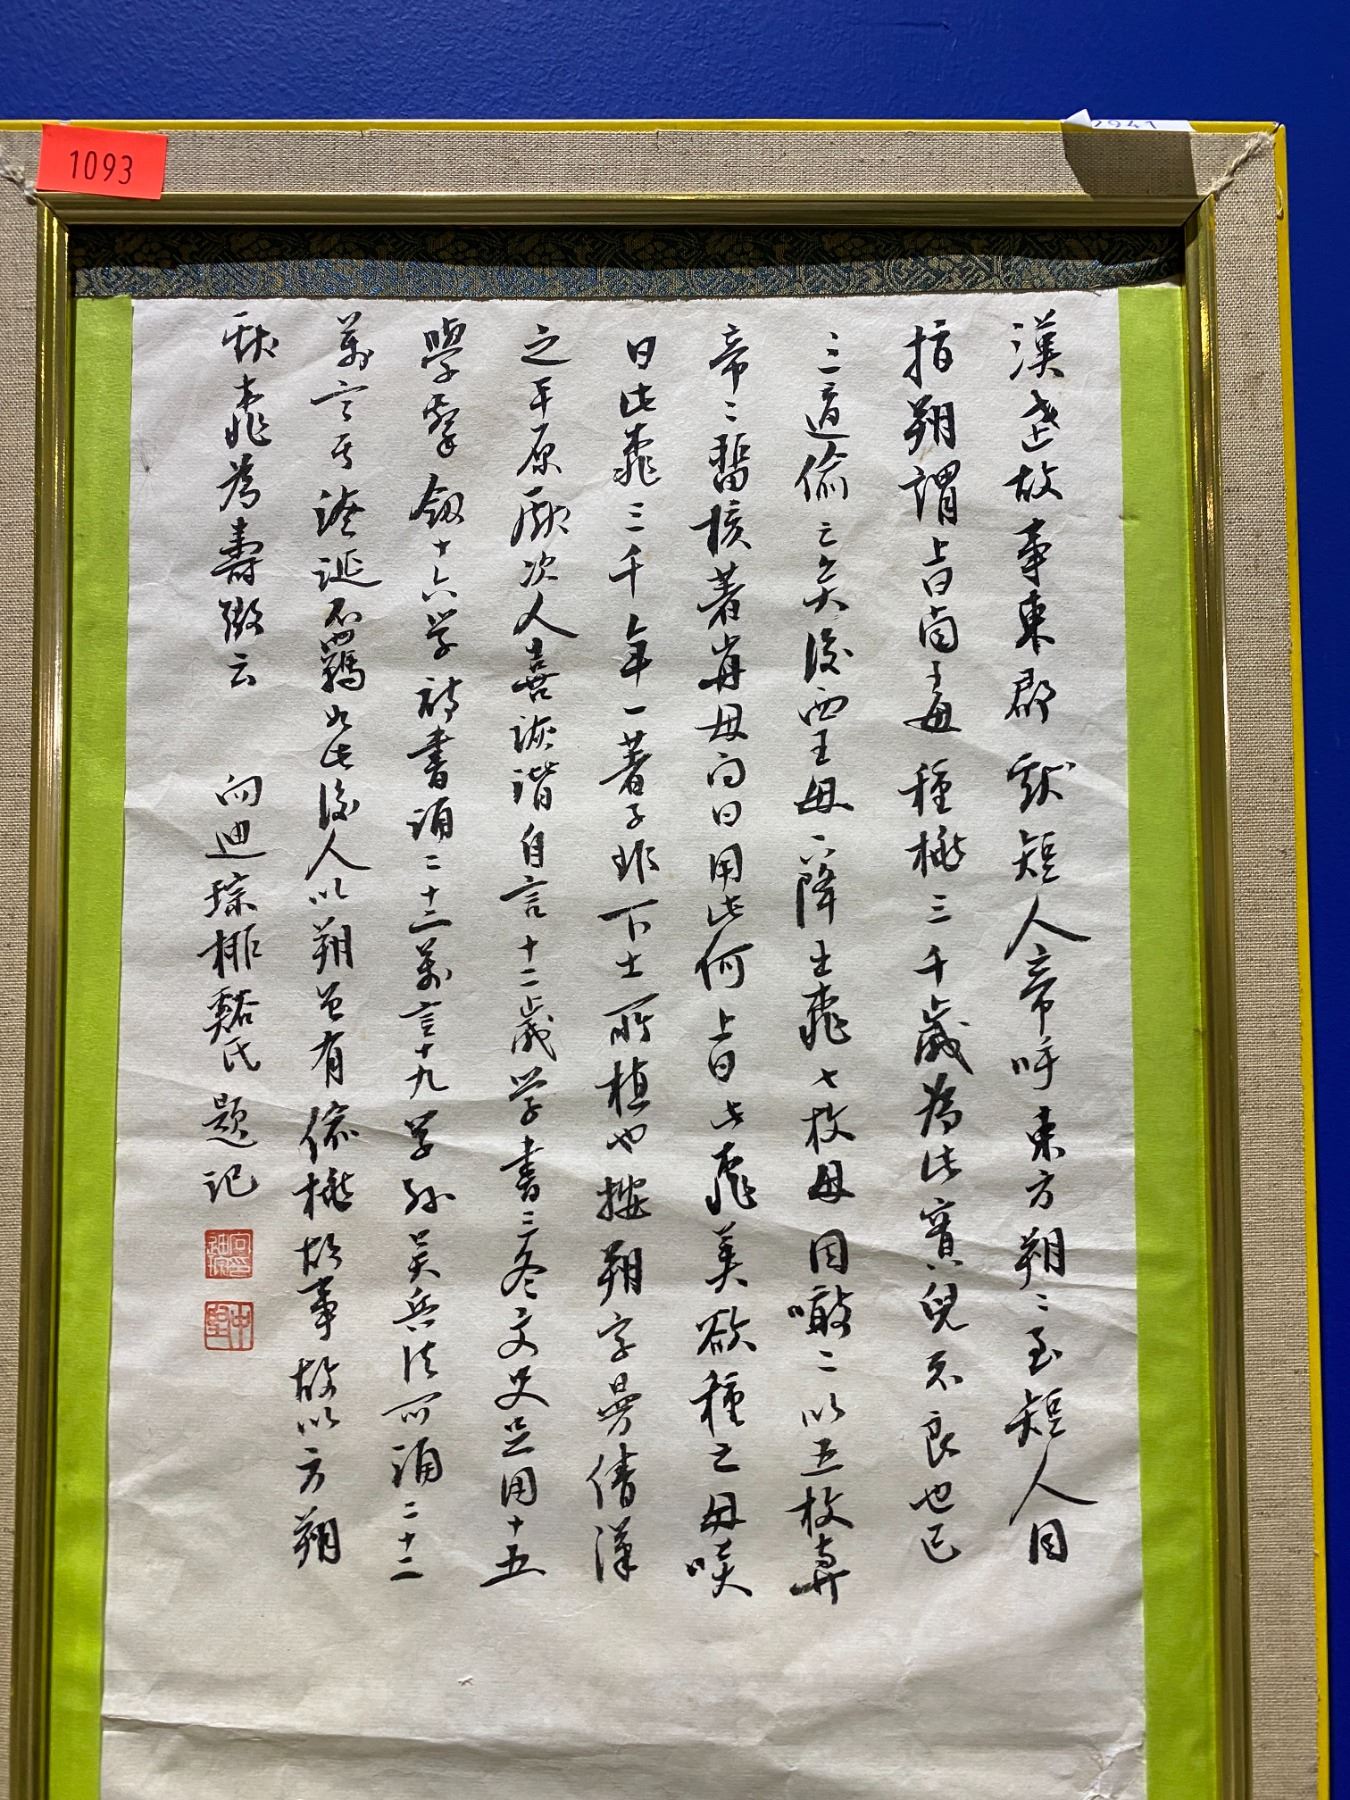 1093
漢武故事東郡獻短人帝呼東方朔〻至短人因
指朔謂上曰西王母種桃三千歲為此賓兒不良也已
三過偷之矣後西王母下降出桃七枚母因噉二以五枚與
帝〻留核著前母問曰用此何上曰此桃美欲種之母嘆
曰此桃三千年一著子非下土所植也按朔字曼倩漢
之平原厭次人喜詼諧自言十二歲学書三冬文史足用十五
學擊劒十六学詩書誦二十二萬言十九学孫吳兵法亦誦二十二
萬言其詼誕不羈如此後人以朔曾有偷桃故事故以方朔
獻桃為壽徵云 向迪琮柳谿氏題記